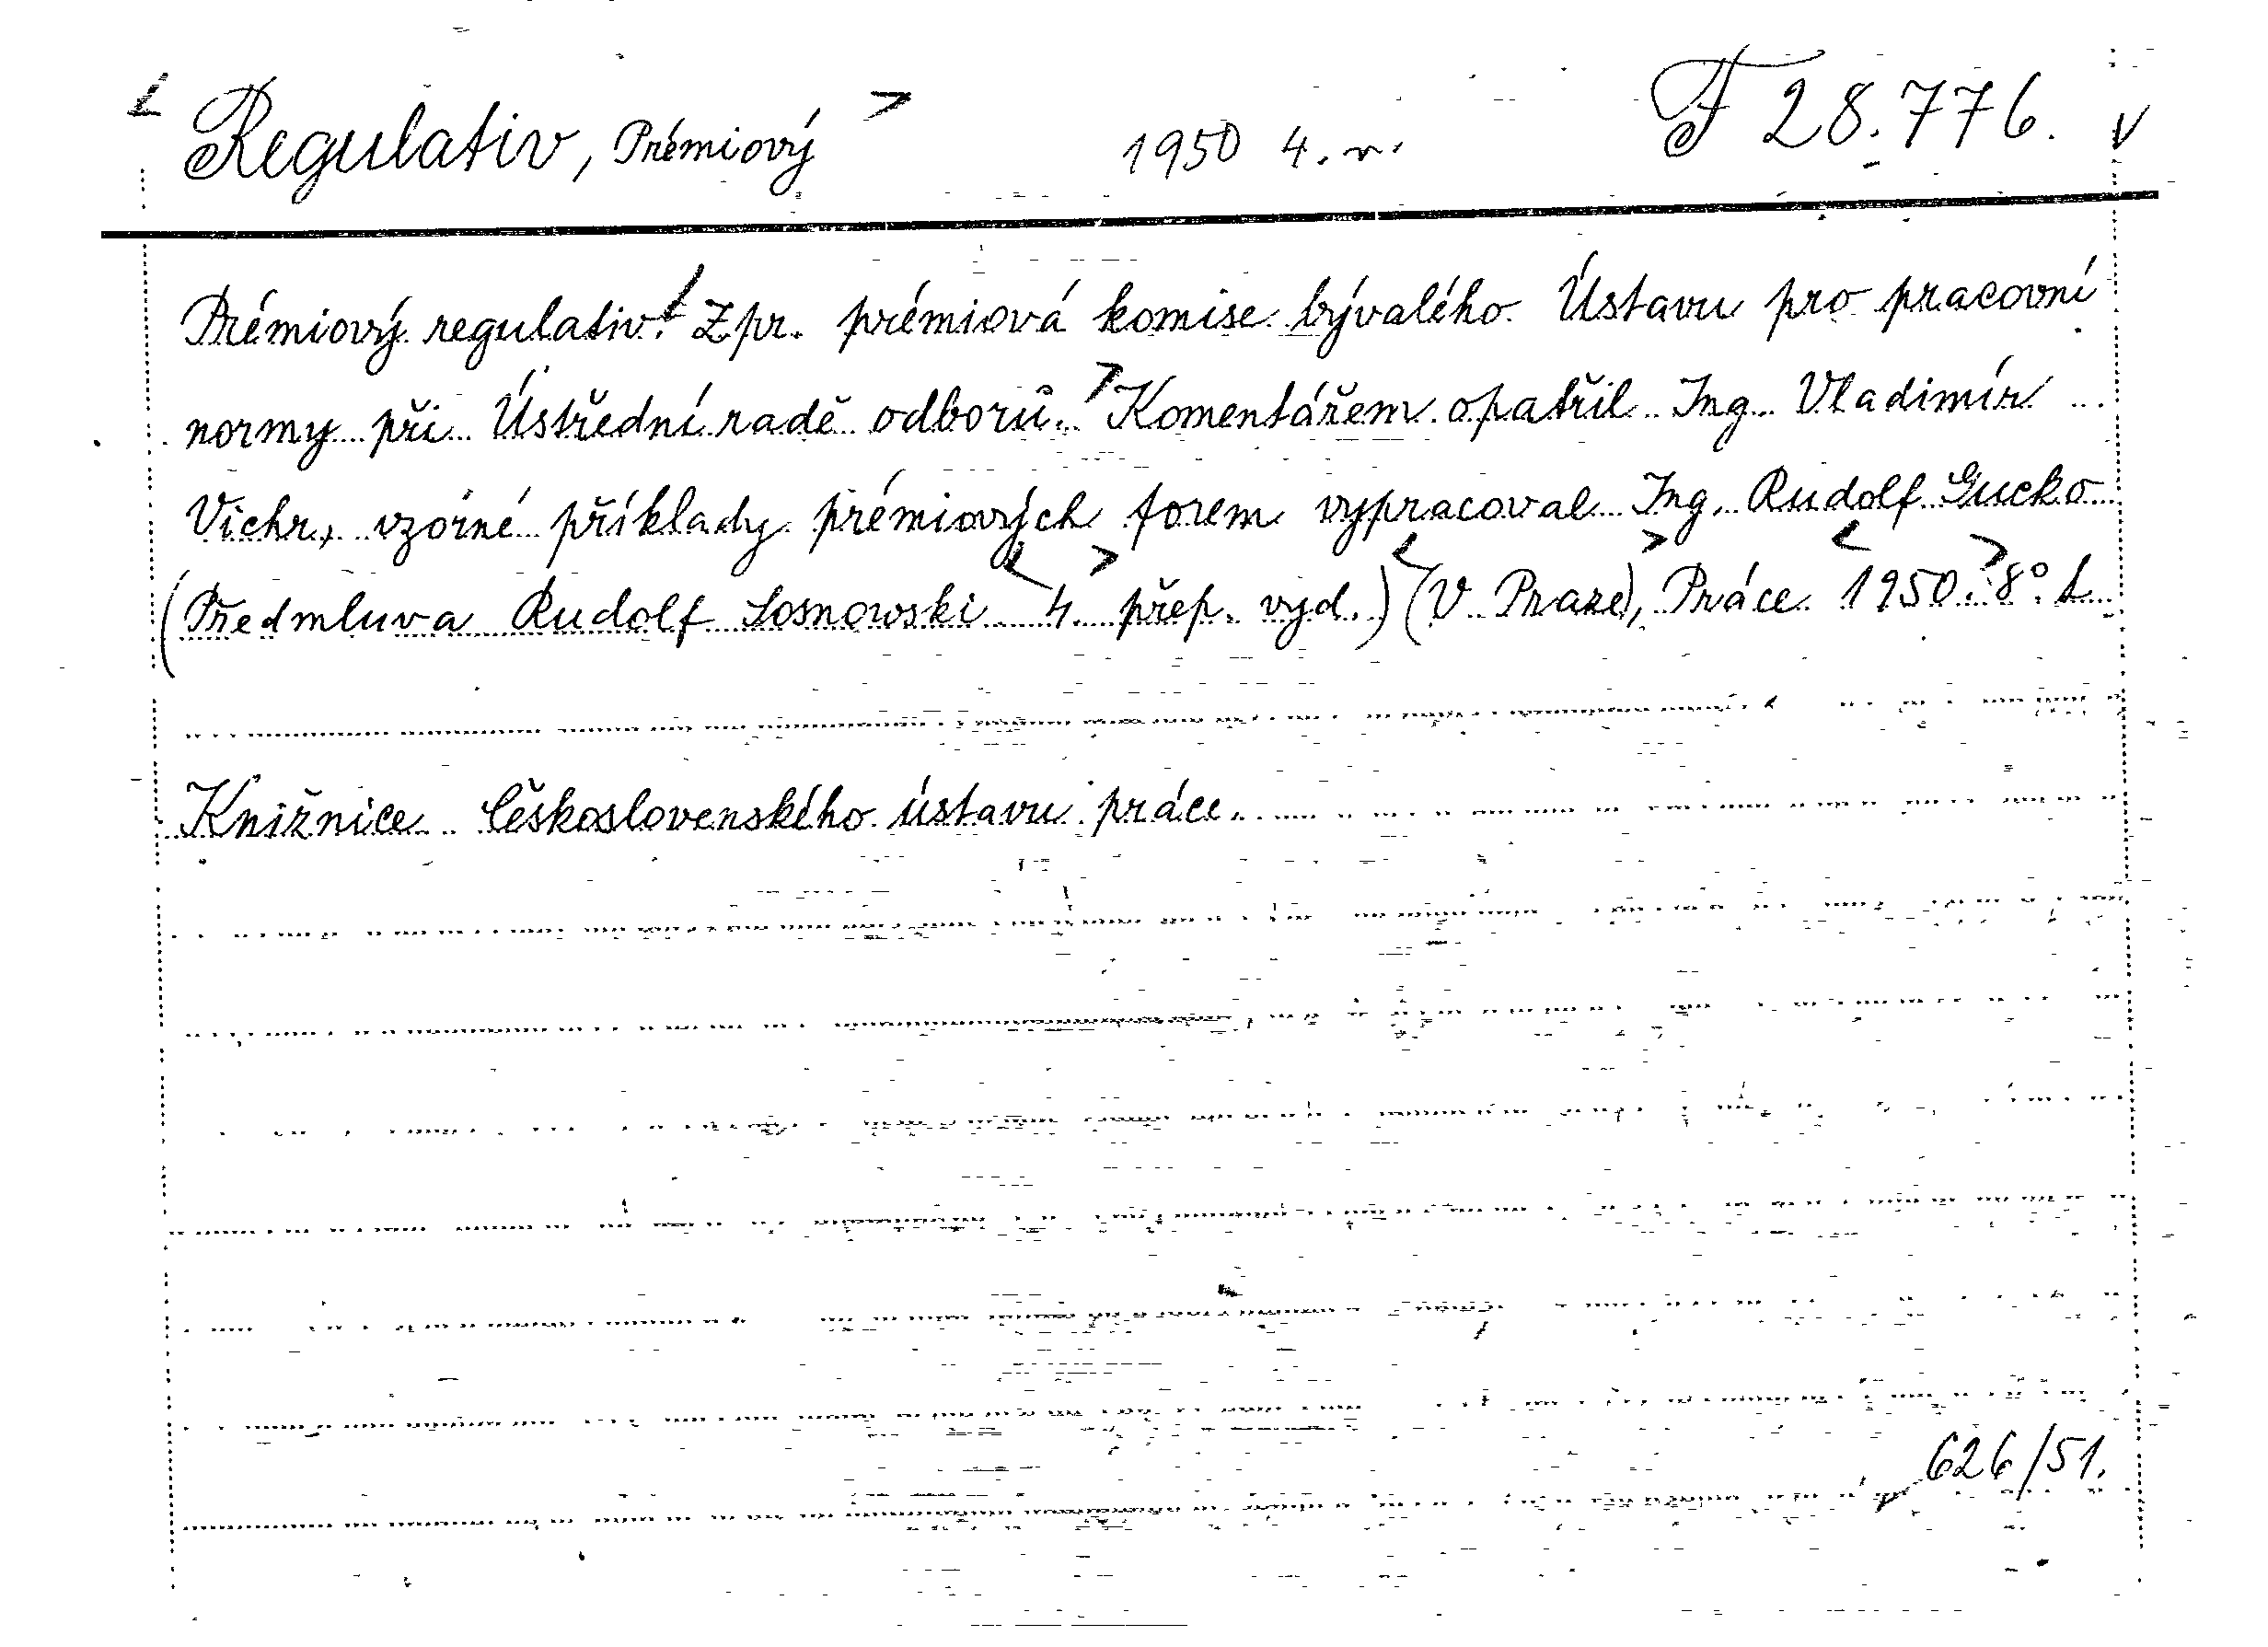 < Regulativ, Prémiový > 1950 4. v. F 28.776. v
Prémiový regulativ. < Zpr. prémiová komise bývalého Ústavu pro pracovní
normy při Ústřední radě odborů. > Komentářem opatřil Ing. Vladimír
Vichr, vzorné příklady prémiových forem vypracoval Ing. Rudolf Gucko
(Předmluva Rudolf Sosnowski < 4. > přep. vyd.) < (V Praze), > Práce < 1950. > 8°.
Knižnice Československého ústavu práce.
626/51.